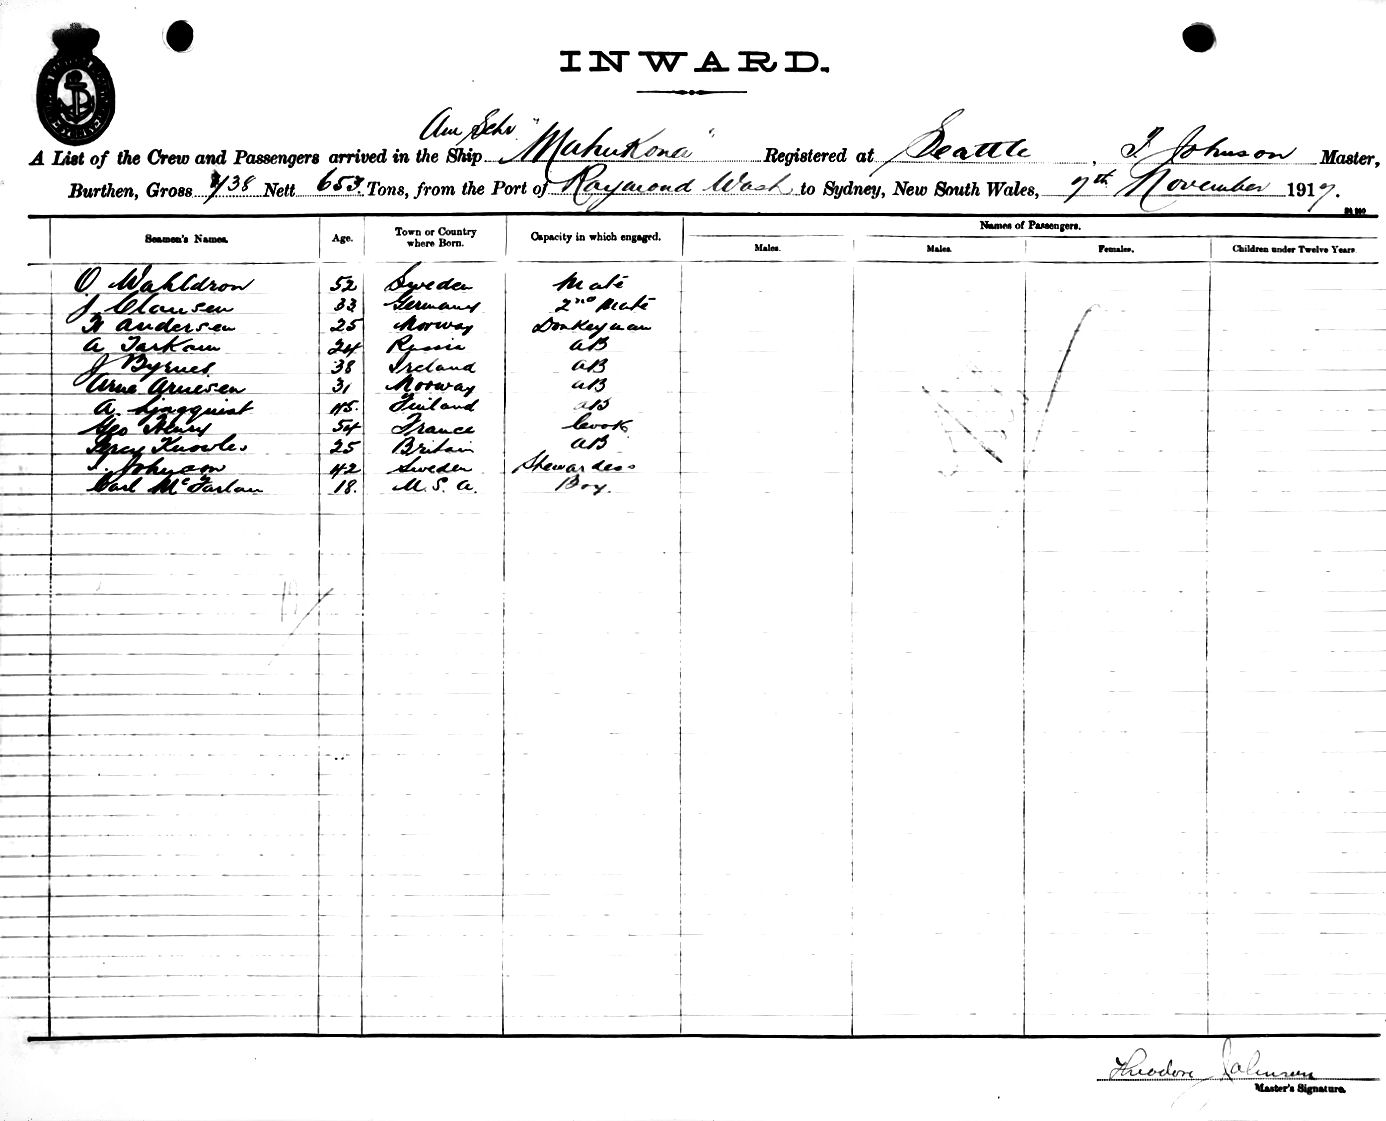 INWARD.
Am Schr
A List of the Crew and Passengers arrived in the Ship "Mahukona" Registered at Seattle, T. Johnson Master,
Burthen, Gross 738 Nett 653 Tons, from the Port of Raymond Wash to Sydney, New South Wales, 7th November 1917.
Names of Passengers.
Seamen's Names. Age. Town or Country where Born. Capacity in which engaged. Males. Males. Females. Children under Twelve Years.
O Wahldron 52 Sweden Mate
J Clausen 33 Germany 2nd Mate
Andersen 25 Norway Donkeyman
A 24 Russia AB
J Byrnes 38 Ireland AB
Arne Arnesen 31 Norway AB
A. 45. Finland AB
Geo Henry 54 France Cook
Percy Knowles 25 Britain AB
T. Johnson 42 Sweden Stewardess
Carl McFarlan 18. U. S. A. Boy.
Theodore Johnson
Master's Signature.